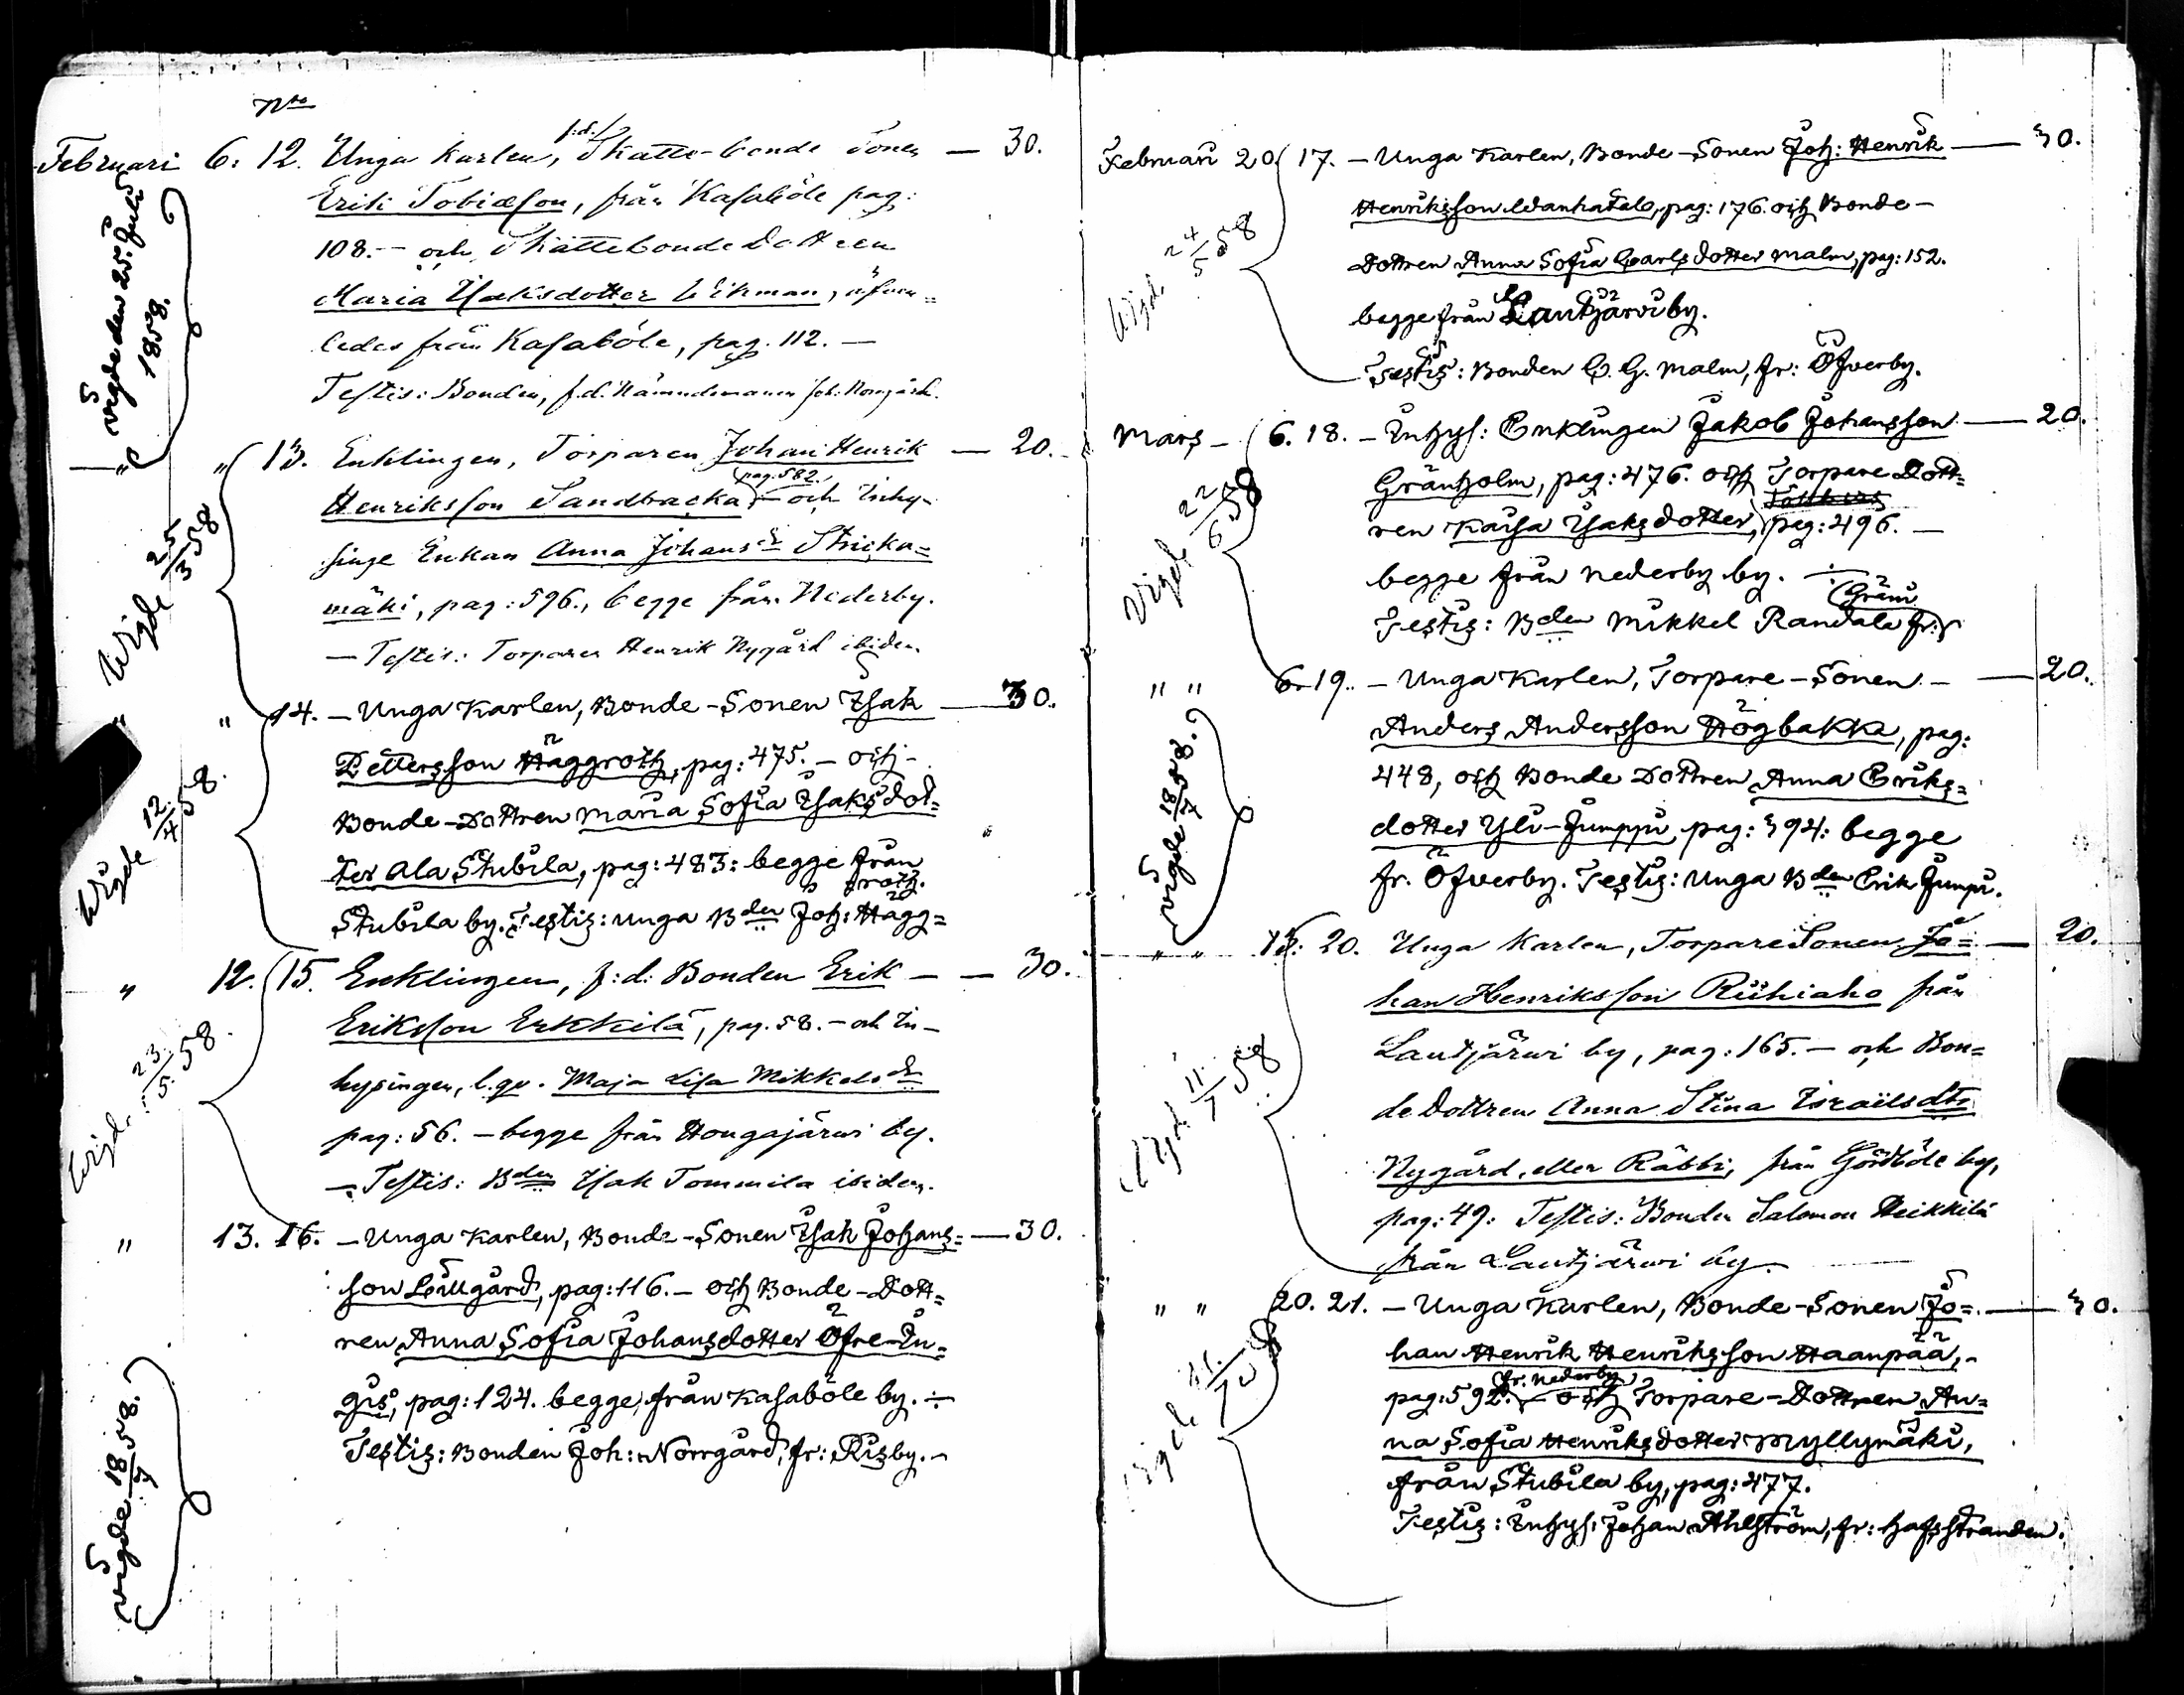 No
Februari 6. 12. Unga Karlen, f:d:/ Skatte-bonde Sonen — 30.
Erik Tobiæson, från Kasaböle pag:
108.— och Skattebonde Dottren
Maria Isaksdotter Wikman, äfven=
ledes från Kasaböle, pag. 112. —
Testis: Bonden, f.d. Nämndemannen Joh: Norrgård.
vigde den 25. Julii
1858.
" " 13. Enklingen, Torparen Johan Henrik — 20.
Henriksson Sandbacka, pag. 582. — och Inhy-
singe Enkan Anna Johansdr Stricka=
mäki, pag: 596., begge från Nederby.
— Testis: Torparen Henrik Nygård ibidem.
Wigde 25/3 58
" " 14. — Unga Karlen, Bonde-Sonen Isak — 30.
Pettersson Häggroth, pag: 475. — och
Bonde-Dottren Maria Sofia Isaksdot=
ter Ala Stubila, pag: 483: begge från
Stubila by. Testis: unga Bden Joh: Hägg=
roth.
Wigde 12/4 58.
" 12. 15. Enklingen, f:d: Bonden Erik — 30.
Eriksson Erkkilä, pag. 58. — och In-
hysingen, l.qv. Maja Lisa Mikkelsdr
pag: 56. — begge från Hongajärwi by.
— Testis: Bden Isak Tommila ibidem.
Wigd. 23/5. 58.
" 13. 16. — Unga Karlen, Bonde-Sonen Isak Johans= — 30.
son Lillgård, pag: 116. — och Bonde-Dott=
ren Anna Sofia Johansdotter Öfre-In=
gis, pag: 124. begge från Kasaböle by. ÷
Testis: Bonden Joh: Norrgård, fr: Risby. —
vigde 18/7 58.
Februari 20. 17. — Unga Karlen, Bonde-Sonen Joh: Henrik — 30.
Henriksson Wanhatalo, pag: 176. och Bonde-
Dottren Anna Sofia Carlsdotter Malm, pag: 152.
begge från Lautjärvi by.
Testis: Bonden C. G. Malm, fr: Öfverby.
Wigde 24/5 58
Mars — 6. 18. — Inhys: Enklingen Jakob Johansson — 20.
Gränholm, pag: 476. och Torpare Dott=
ren Kaisa Isaksdotter, pag: 496. —
begge från Nederby by. ÷
Testis: Bden Mikkel Randala fr: Gränv
Vigde 22/6 58
" " 6. 19. — Unga Karlen, Torpare-Sonen — 20.
Anders Andersson Högbakka, pag:
448, och Bonde Dottren Anna Eriks=
dotter Yli-Junppi, pag: 394: begge
fr. Öfverby. Testis: Unga Bden Erik Junppi.
vigde 18/7 58.
" " 13. 20. Unga Karlen, Torpare Sonen Jo= — 20.
han Henriksson Riihiaho från
Lautjärwi by, pag: 165. — och Bon=
de Dottren Anna Stina Israëlsdtr
Nygård, eller Räbbi, från Gördböle by,
pag: 49: Testis: Bonden Salomon Heikkilä
från Lautjärwi by.
Wigd 11/7 58
" " 20. 21. — Unga Karlen, Bonde-Sonen Jo= — 30.
han Henrik Henriksson Haanpää,
pag: 592. fr. Nederby — och Torpare-Dottren An=
na Sofia Henriksdotter Myllymäki,
från Stubila by, pag: 477.
Testis: Inhys: Johan Ahlström, fr: hafsstranden.